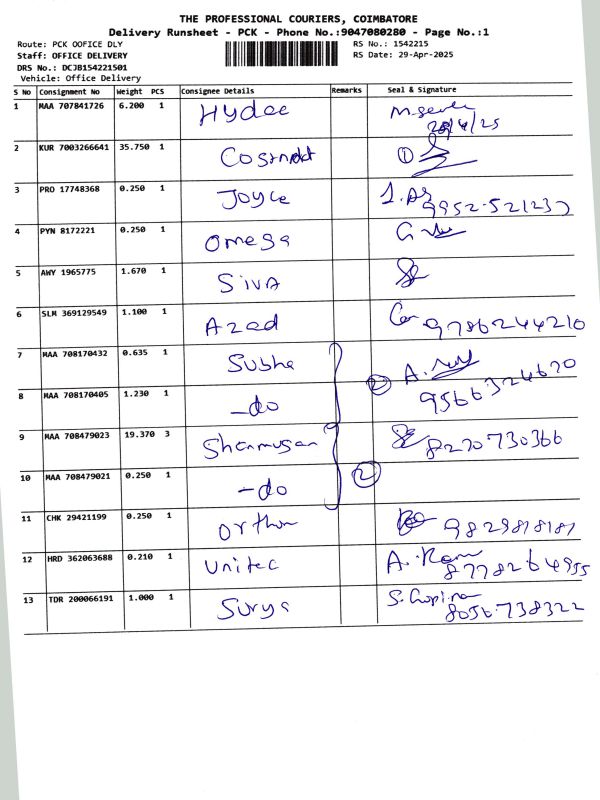 THE PROFESSIONAL COURIERS, COIMBATORE
Delivery Runsheet - PCK - Phone No.:9047080280 - Page No.:1
Route: PCK OOFICE DLY RS No.: 1542215
Staff: OFFICE DELIVERY RS Date: 29-Apr-2025
DRS No.: DCJB154221501
Vehicle: Office Delivery
S No Consignment No Weight PCS Consignee Details Remarks Seal & Signature
1 MAA 707841726 6.200 1 Hydee
29/4/25
2 KUR 7003266641 35.750 1 ①
3 PRO 17748368 0.250 1 Joyce
9952-521237
4 PYN 8172221 0.250 1 Omega
5 AWY 1965775 1.670 1 Siva
6 SLM 369129549 1.100 1 Azad 9786244210
7 MAA 708170432 0.635 1 Subha A.
8 MAA 708170405 1.230 1 -do ② 9566324670
9 MAA 708479023 19.370 3 Shanmugan 8270730366
10 MAA 708479021 0.250 1 -do ②
11 CHK 29421199 0.250 1 Ortho 9829818181
12 HRD 362063688 0.210 1 Unitec A. Ram
8778264955
13 TDR 200066191 1.000 1 Surya S. Gopina
8056738322